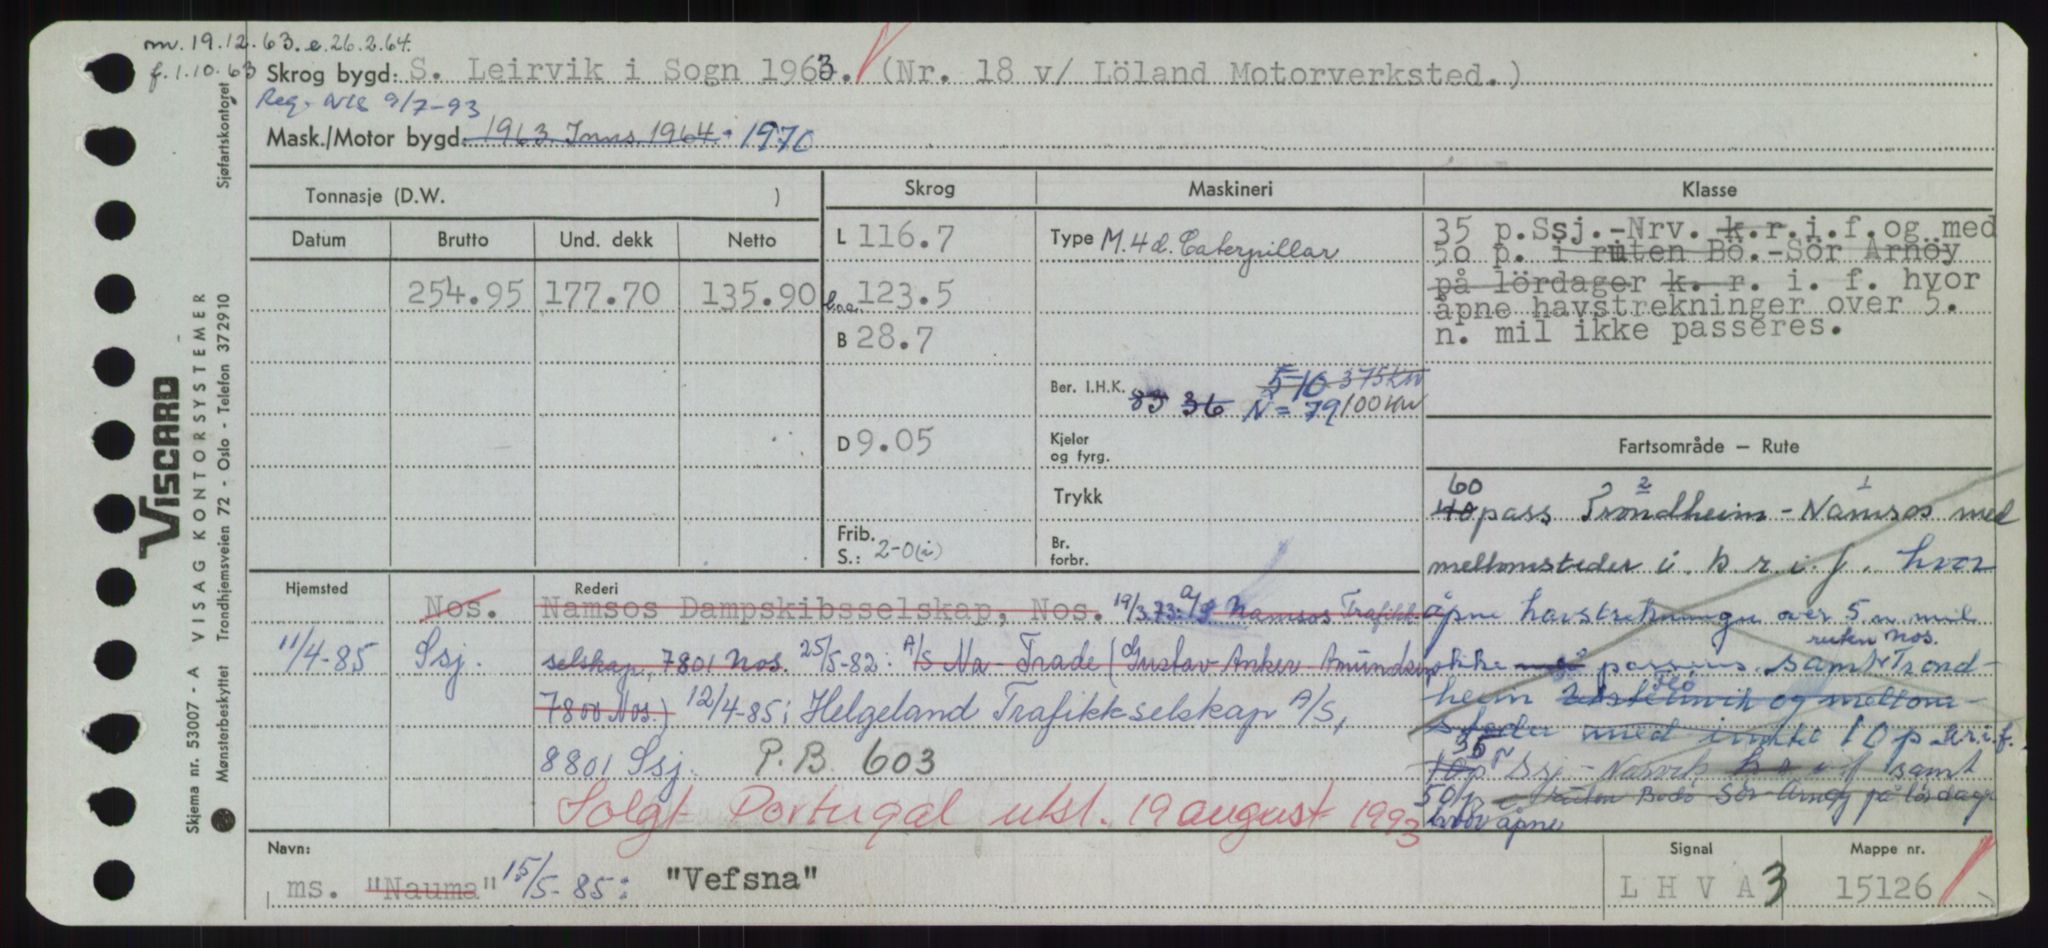 mv. 19.12.63. e. 26.2.64.
f. 1.10.63 Skrog bygd: S. Leirvik i Sogn 1963. (Nr. 18 v/ Löland Motorverksted.)
Reg. NIS 9/7-93
Mask./Motor bygd: 1963. Inns. 1964. 1970
Sjøfartskontoret
Tonnasje (D.W. )
Skrog
Maskineri
Klasse
Datum Brutto Und. dekk Netto
254.95 177.70 135.90
L 116.7
loa. 123.5
B 28.7
D 9.05
Frib.
S.: 2-0(i)
Type M.4d. Caterpillar
Ber. I.H.K. 83 36 510 375kW
N = 79 100 kW
Kjeler
og fyrg.
Trykk
Br.
forbr.
35 p.Ssj.-Nrv. k.r.i.f.og med
50 p. i ruten Bö.-Sör Arnöy
på lördager k. r. i. f. hvor
åpne havstrekninger over 5.
n. mil ikke passeres.
Fartsområde — Rute
60 2 1
40 pass Trondheim - Namsos med
mellomsteder i. k r. i. f. hvor
åpne havstrekninger over 5 n mil
ruten Nos.
ikke passeres. samt Trond-
heim og mellom-
steder med inntil 10 p. k.r.i.f.
35
10 p Ssj - Narvik k r i f samt
50 p i ruten Bodö Sör-Arnöy på lördager
hvor åpne
Hjemsted Rederi
Nos. Namsos Dampskibsselskap, Nos. 19/3.73: A/S Namsos Trafikk-
11/4-85 Ssj. selskap, 7801 Nos. 25/5-82: A/S Na-Trade (Gustav Anker Amundsen,
7800 Nos.) 12/4-85: Helgeland Trafikkselskap A/S,
8801 Ssj. P.B. 603
Solgt Portugal utsl. 19 august 1993
Navn:
ms. "Nauma" 15/5-85: "Vefsna"
Signal
L H V A 3
Mappe nr.
15126
VISCARD
VISAG KONTORSYSTEMER
Skjema nr. 53007 - A
Mønsterbeskyttet Trondhjemsveien 72 - Oslo - Telefon 372910